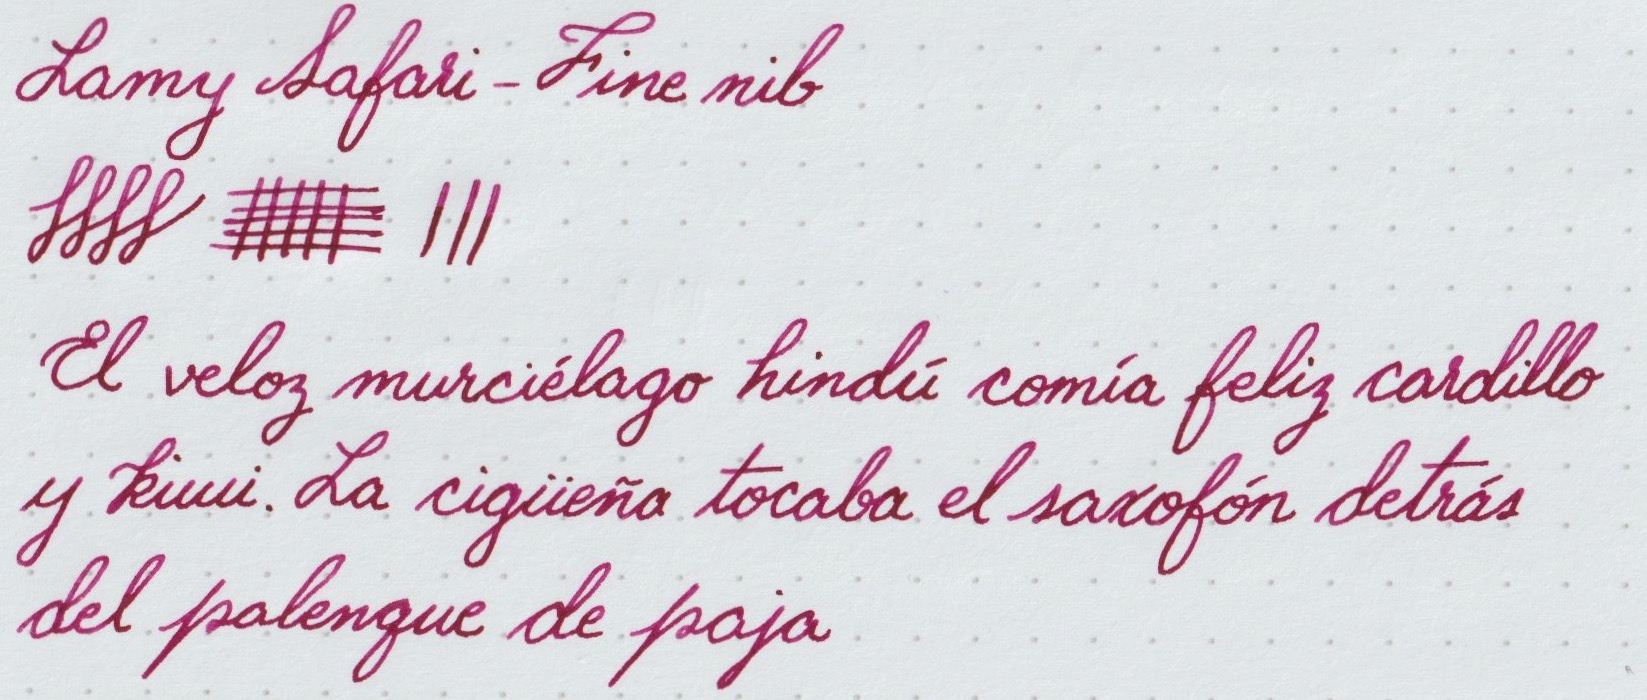 Lamy Safari - Fine nib
El veloz murciélago hindú comía feliz cardillo
y kiwi. La cigüeña tocaba el saxofón detrás
del palenque de paja